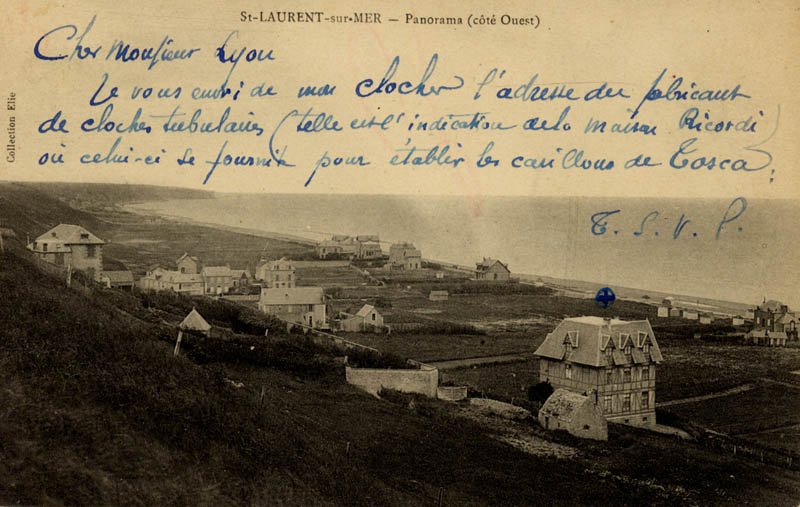 St-LAURENT-sur-MER — Panorama (côté Ouest)
Collection Elie
Cher Monsieur Lyon
Je vous envoi de mon clocher l'adresse du fabricant
de cloches tubulaires (telle est l'indication de la maison Ricordi)
où celui-ci se fournit pour établir les carillons de Tosca.
T. S. V. P.